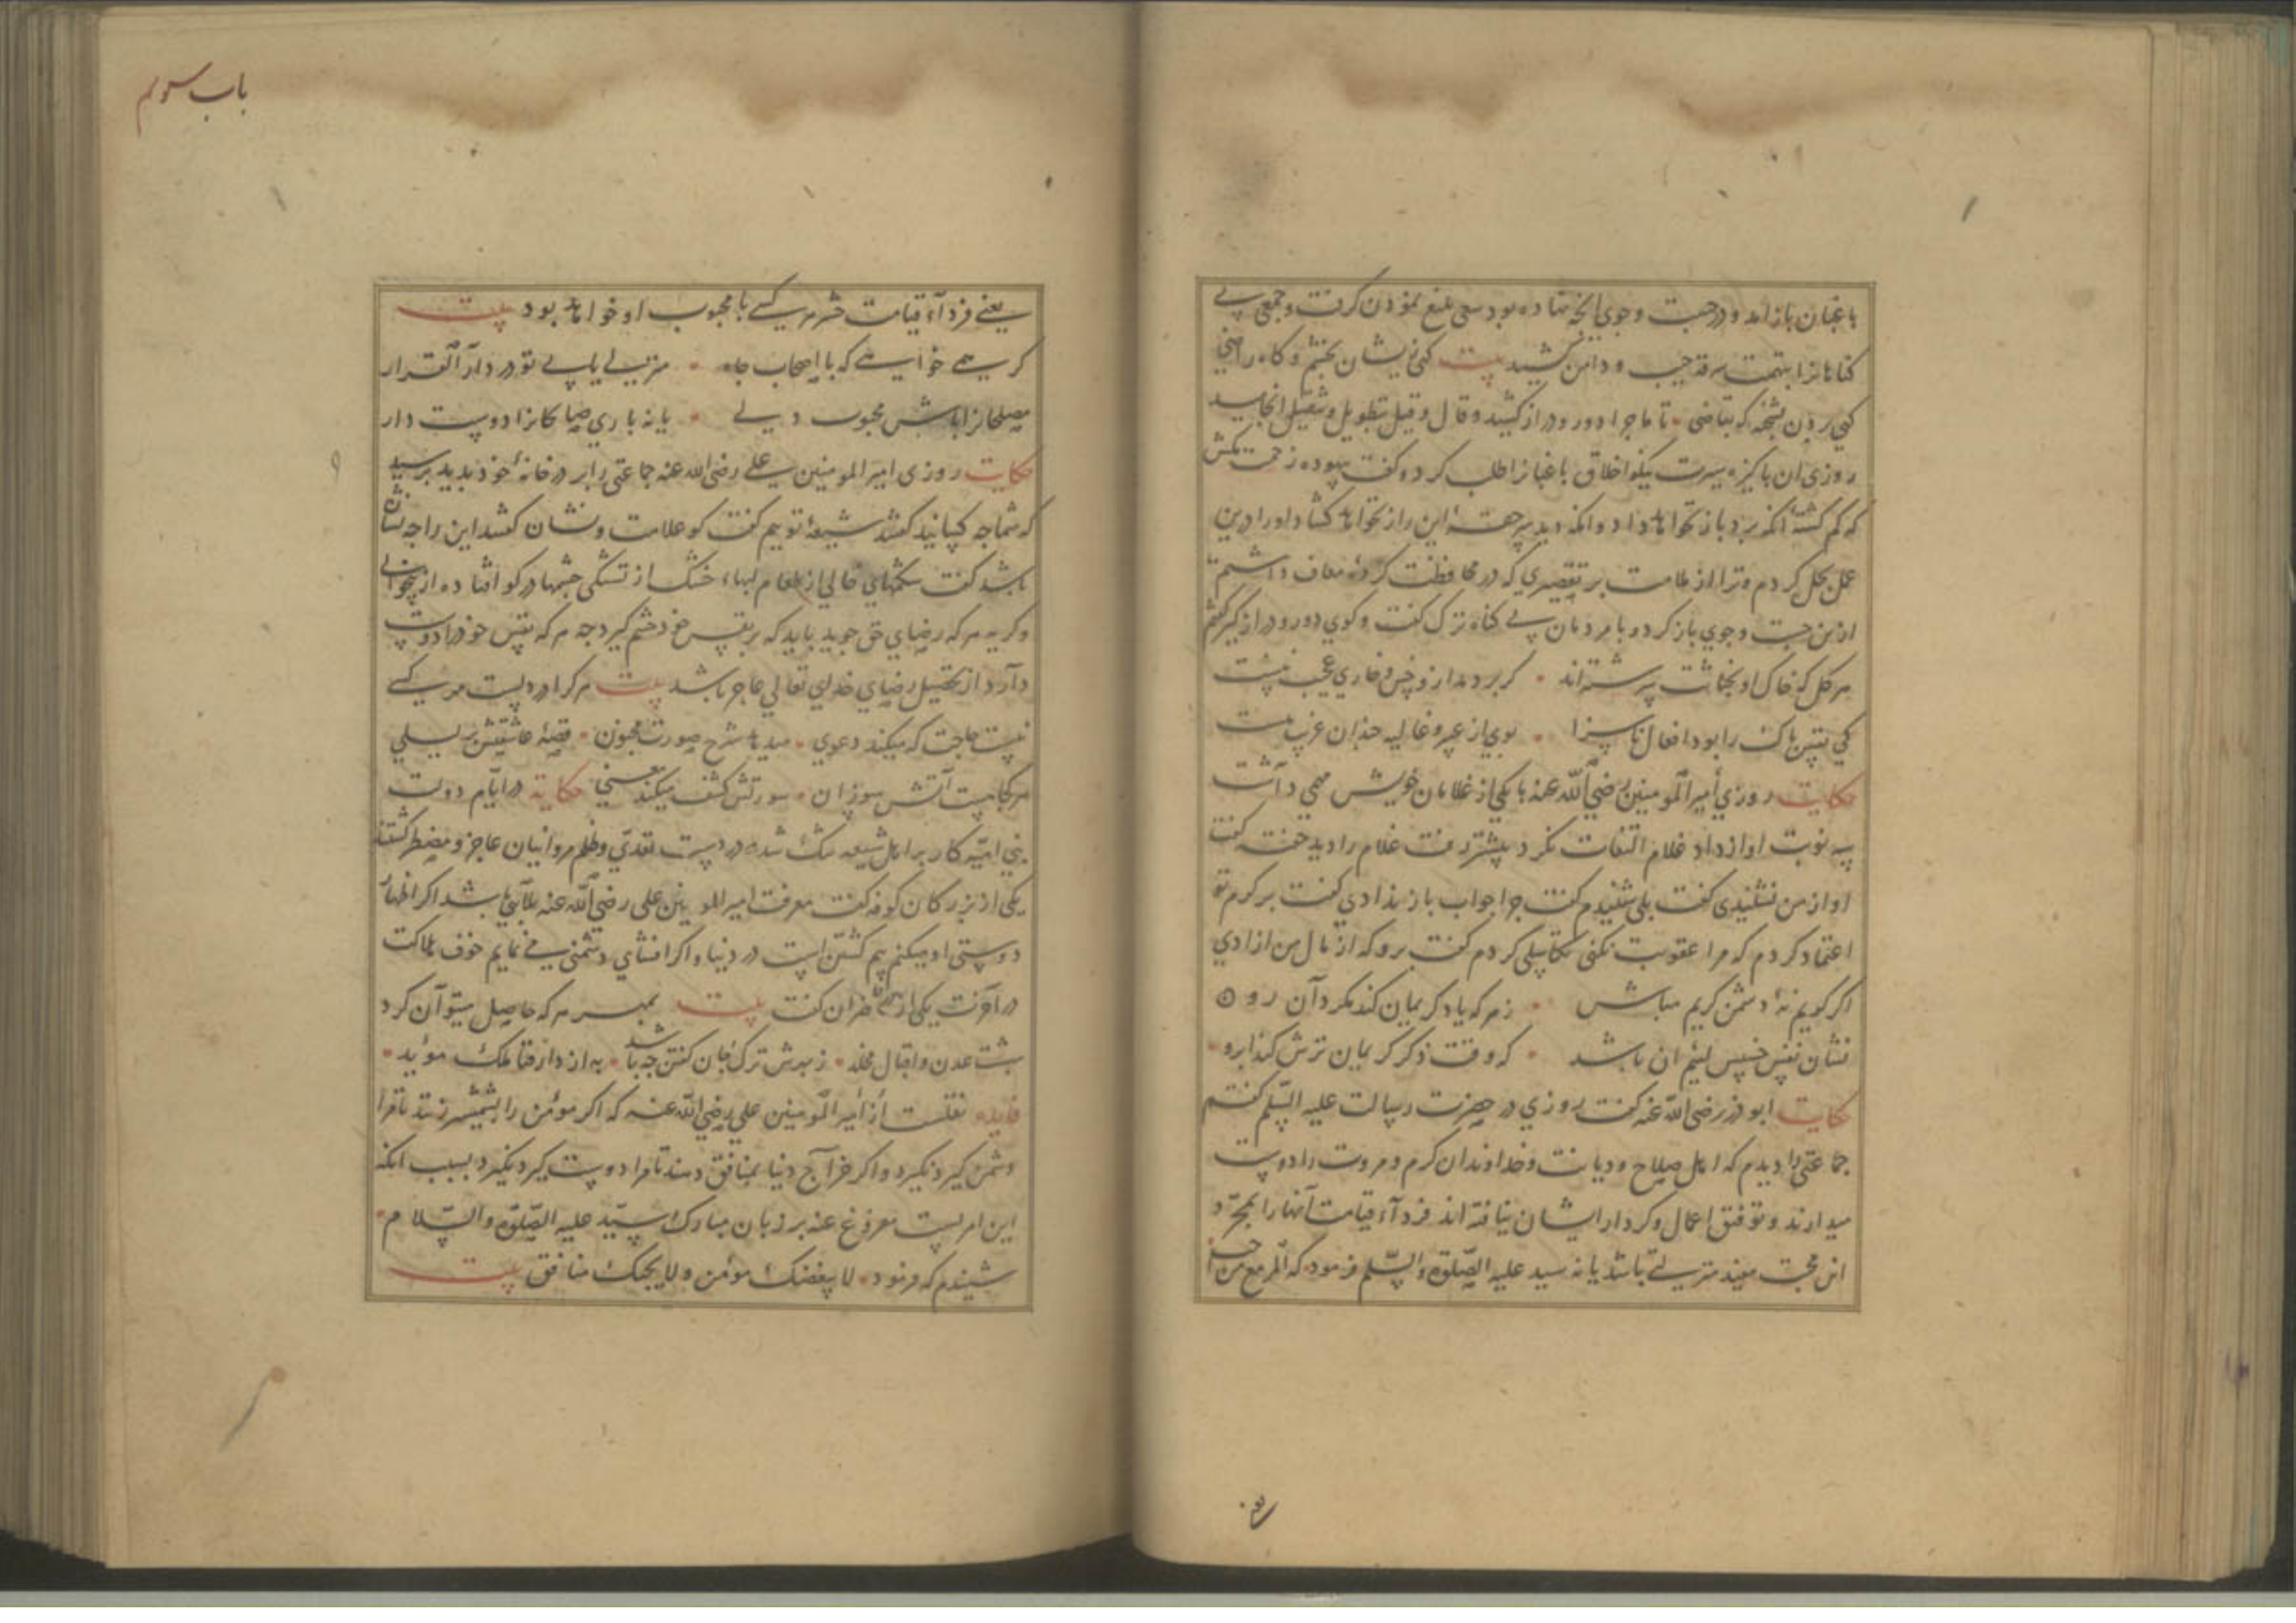 باغبان باز آمد و در جست و جوی آنچه نهاده بود سعی بلیغ نمودن گرفت و جمعی بی
کناهانرا بتهمت سرقه جیب و دامن کشید بیت کهی ریشان بخشم و کاه راضی
کهی بردن بشحنه که بقاضی تا ماجرا دور و دراز کشید و قال و قیل بتطویل و تثقیل انجامید
روزی ان پاکیزه سیرت نیکو اخلاق باغبانرا طلب کرد و کفت بیهوده زحمت مکش
که کم کشته آنکه برد باز نخواهد داد و آنکه دید سر حقه این راز نخواهد کشاد او را درین
عمل بحل کردم و ترا از ملامت بر تقصیری که در محافظت کردهٔ معاف داشتم
ازین جست و جوی باز کرد و با مردمان بی کناه ترک کفت و کوی دور و دراز کیر
هر کل که خاک او بخباثت سرشته‌اند کر بردمد ازو خس و خاری عجیب نیست
کی نفس پاک را بود افعال ناسزا بوی از عبیر و غالیه چندان غریب نیست
حکایت روزی أمیر المومنین رضی الله عنه با یکی از غلامان خویش مهمی داشت
سه نوبت اواز داد غلام التفات نکرد پیشتر رفت غلام را دید خفته کفت
اواز من نشنیدی کفت بلی شنیدم کفت چرا جواب باز ندادی کفت بر کرم تو
اعتماد کردم که مرا عقوبت نکنی تکاسلی کردم کفت برو که از مال من ازادی
اکر کریم نهٔ دشمن کریم مباش زهر که یاد کریمان کند مکردان رو
نشان نفس خسیس لئیم ان باشد که وقت ذکر کریمان ترش کند ابرو
حکایت ابو ذر رضی الله عنه کفت روزی در حضرت رسالت علیه السلم کفتم
جماعتی را دیدم که اهل صلاح و دیانت و خداوندان کرم و مروت را دوست
میدارند و توفیق اعمال و کردار ایشان نیافته اند فردآء قیامت آنها را بمجرد
این محبت مفید منزلتی باشد یا نه سید علیه الصلوة والسلم فرمود که المرء مع من احب
باب سوم
یعنی فردآء قیامت حشر هر کسی با محبوب او خواهد بود بیت
کر همی خواهی که با اصحاب جاه منزلی یابی تو در دار القرار
مصلحانرا باش محبوب دلی یا نه باری صالحانرا دوست دار
حکایت روزی امیر المومنین علی رضی الله عنه جماعتی را بر در خانهٔ خود بدید پرسید
که شما چه کسانید کفتند شیعهٔ توییم کفت کو علامت و نشان کفتند این را چه نشان
باشد کفت شکمهای خالی از طعام لبهاء خشک از تشنکی چشمها در کو افتاده از بیخوابی
و کریه هر که رضای حق جوید باید که بر نفس خود خشم کیرد چه هر که نفس خود را دوست
دآرد از تحصیل رضای خدای تعالی عاجز باشد بیت هر کرا در دلست مهر کسی
نیست حاجت که میکند دعوی میدهد شرح صورت مجنون قصهٔ عاشقیش بر لیلی
هر کجا هست آتش سوزان سورتش کشف میکند معنی حکایة در ایام دولت
بنی امیه کار بر اهل شیعه تنک شده در دست تعدی و ظلم مروانیان عاجز و مضطر کشتند
یکی از بزرکان کوفه کفت معرفت امیر المومنین علی رضی الله عنه بلایی باشد اکر اظهار
دوستی او میکنم بیم کشتن است در دنیا و اکر افشای دشمنی می نمایم خوف هلاکت
در آخرت یکی از حاضران کفت بیت بمهر هر که حاصل میتوان کرد
بهشت عدن و اقبال مخلد ز مهرش ترک جان کفتن چه باشد به از دار فنا ملک مؤبد
فایده نقلست از أمیر المومنین علی رضی الله عنه که اکر مؤمن را بشمشیر زنند تا مرا
دشمن کیرد نکیرد و اکر خراج دنیا بمنافق دهند تا مرا دوست کیرد نکیرد بسبب انکه
این امریست مفروغ عنه بر زبان مبارک سید علیه الصلوة والسلام
شنیدم که فرمود لا یبغضک مؤمن ولا یحبک منافق بیت